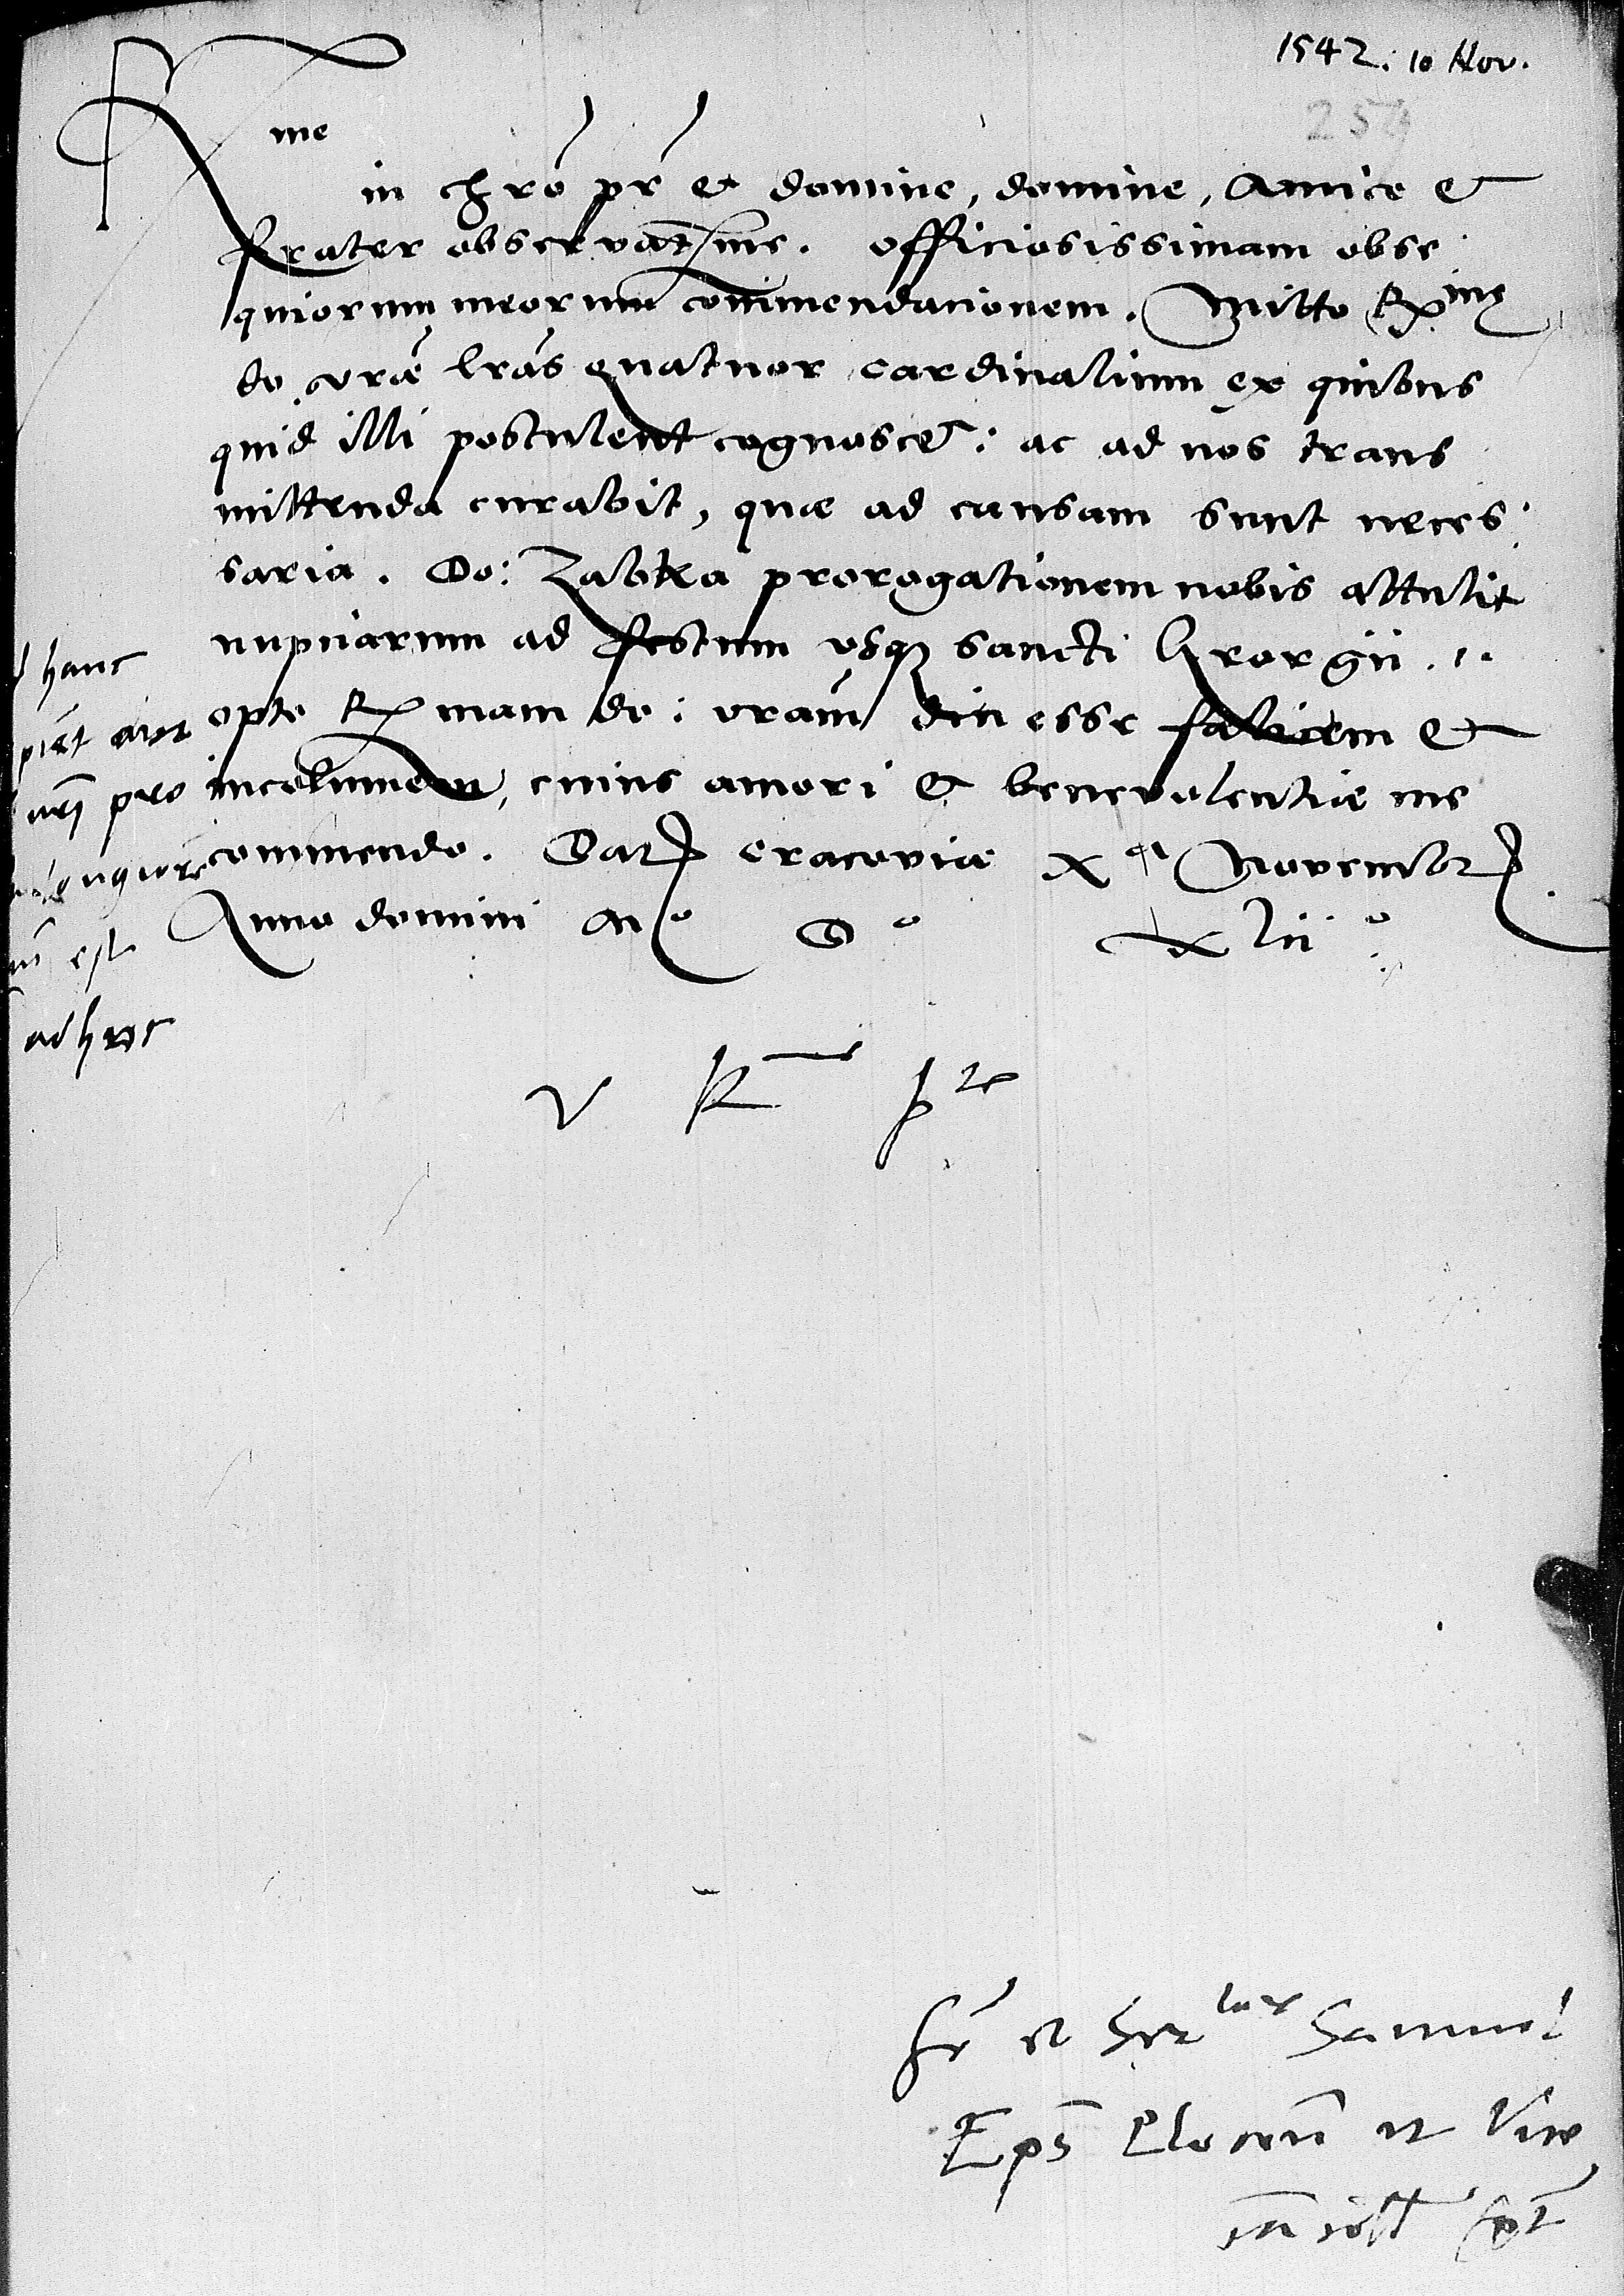 1542. 10 Nov.
254
R me
in chro pr et domine, domine, amice et
frater observatme. officiosissimam obse
quiorum meorum commendacionem. Mitto Rme
do. vrae lras quatuor cardinalium ex quibus
quid illi postulent cognoscet: ac ad nos trans
mittenda curabit, quae ad causam sunt neces:
saria. Do: Zabka prorogationem nobis attulit
nupciarum ad festum vsq sancti Georgii.
opto R mam do: vram diu esse falicem et
incolumem, cuius amori et benevolentiae me
commendo. Dat Cracoviae X a Novembr.
Anno domini M o D o xlii o
hanc
pro
est
adhuc
V R me p
fr et Samuel
Eps Plocen et Vice